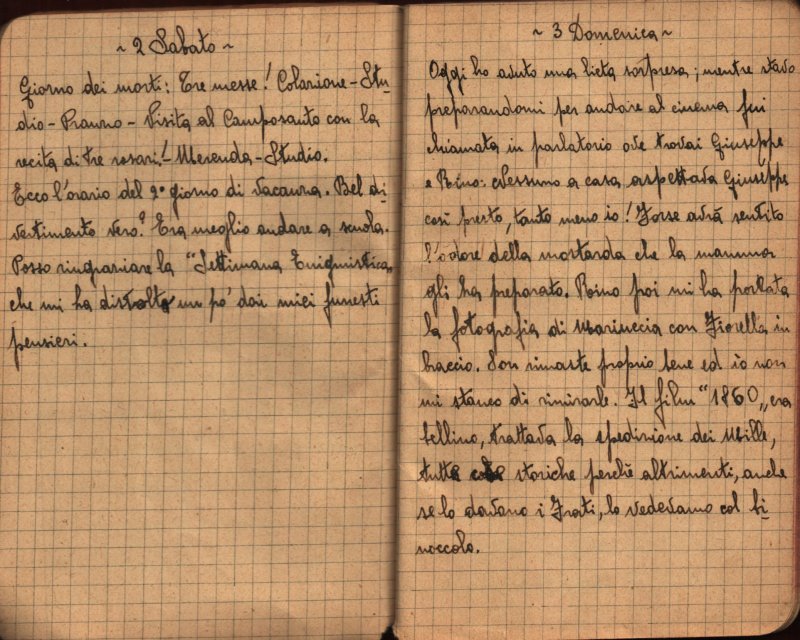 ~ 2 Sabato ~
Giorno dei morti: Tre messe! Colazione - Stu-
dio - Pranzo - Visita al Camposanto con la
recita di tre rosari! - Merenda - Studio.
Ecco l'orario del 2° giorno di vacanza. Bel di-
vertimento vero? Era meglio andare a scuola.
Posso ringraziare la "Settimana Enigmistica"
che mi ha distolto un po' dai miei funesti
pensieri.
~ 3 Domenica ~
Oggi ho avuto una lieta sorpresa; mentre stavo
preparandomi per andare al cinema fui
chiamata in parlatorio ove trovai Giuseppe
e Rino. Nessuno a casa aspettava Giuseppe
così presto, tanto meno io! Forse avrà sentito
l'odore della mostarda che la mamma
gli ha preparato. Rino poi mi ha portata
la fotografia di Mariuccia con Fiorella in
braccio. Son rimaste proprio bene ed io non
mi stanco di rimirarle. Il film "1860" era
bellino, trattava la spedizione dei Mille,
tutte cose storiche perchè altrimenti, anche
se lo davano i Frati, lo vedevamo col bi-
noccolo.